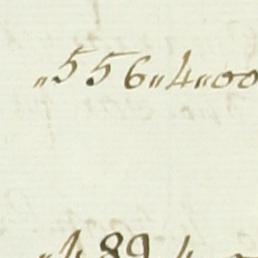 "556"4"00
"489"4